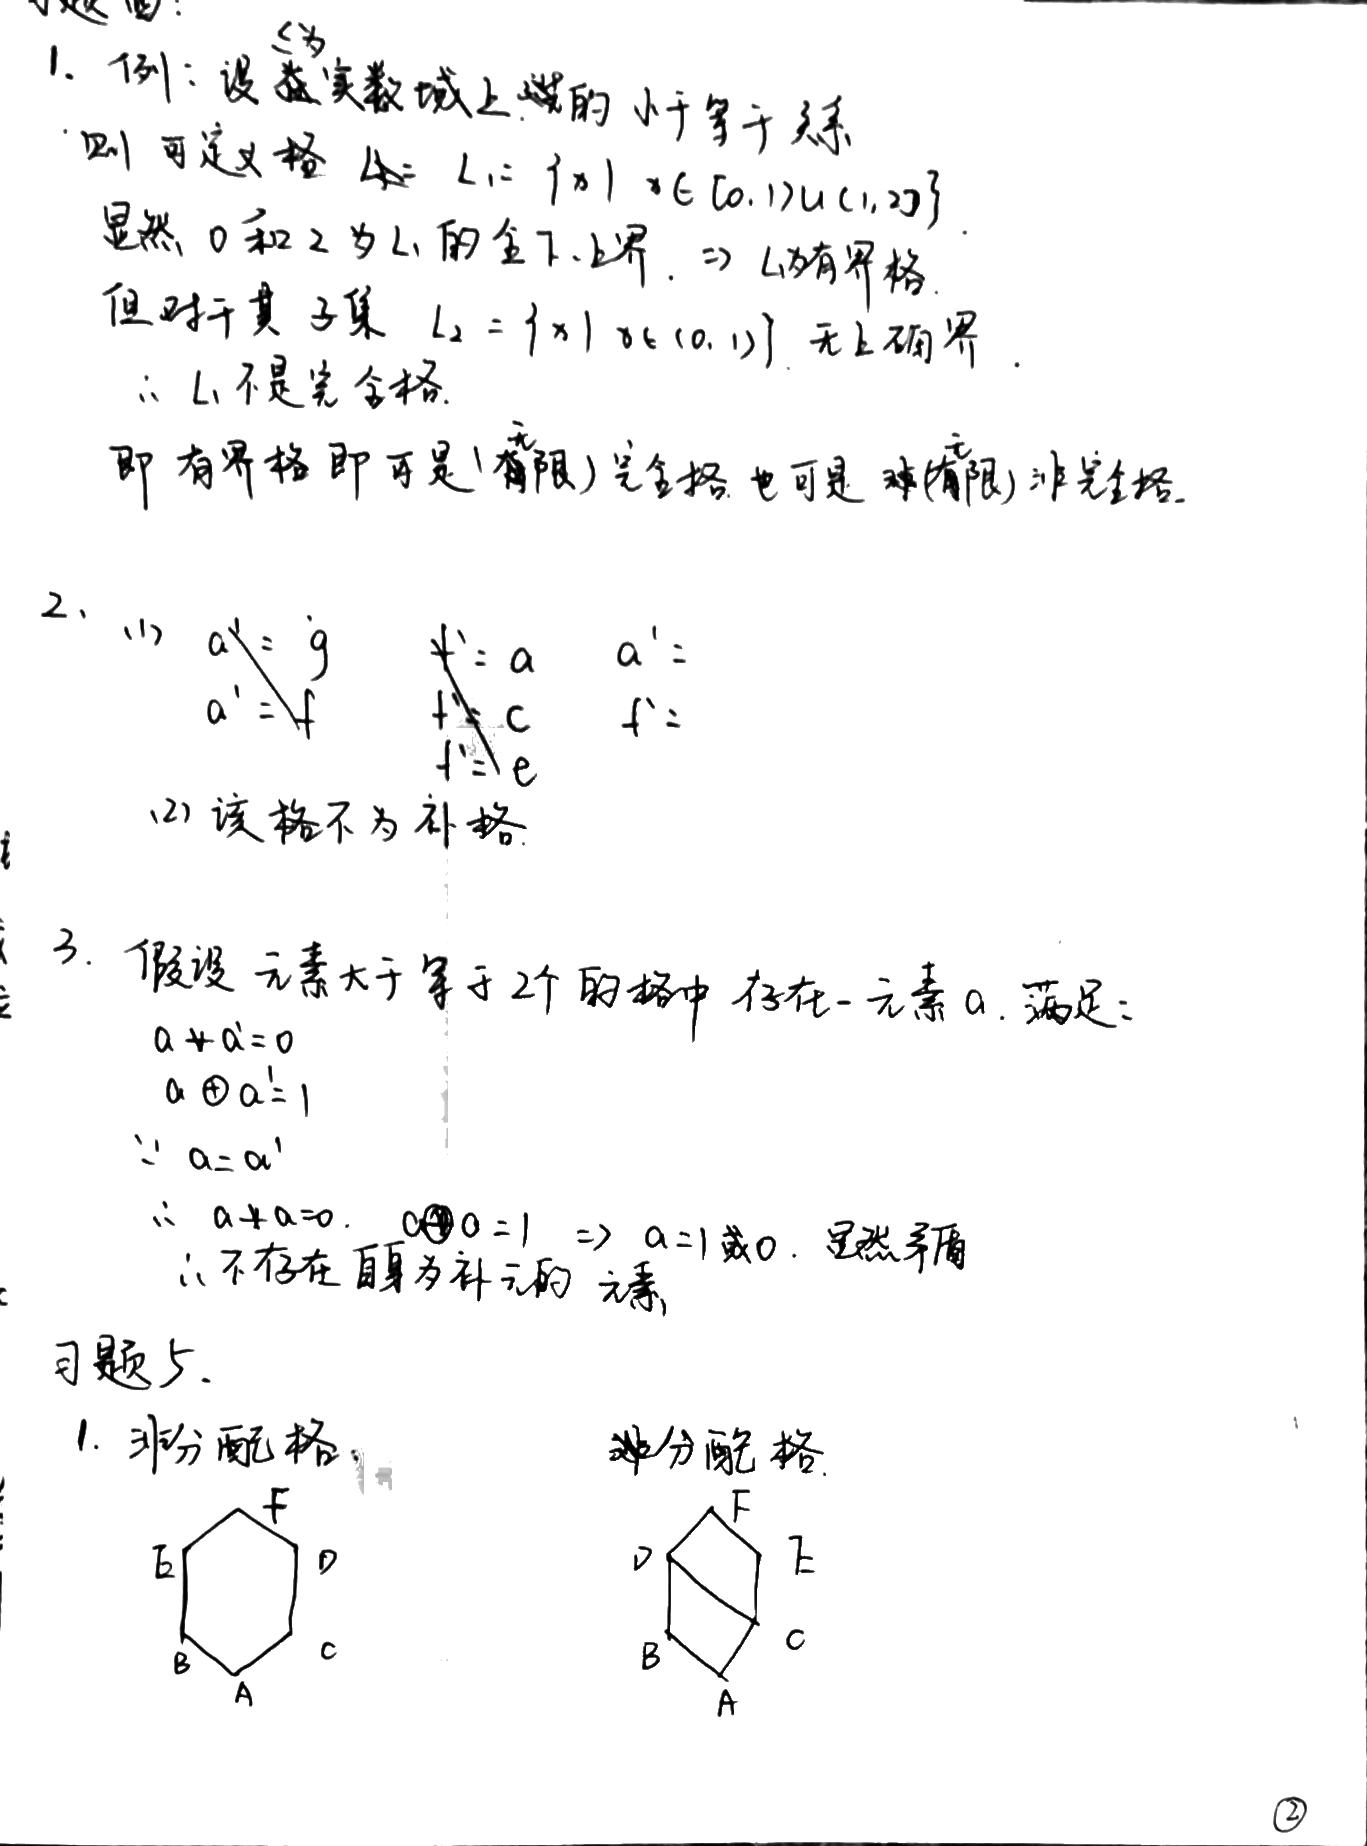 习题四:
1. 例: 设≤为实数域上的小于等于关系
则可定义格 L₁= {x| x∈[0,1)∪(1,2]}.
显然, 0和2为L₁的全下、上界. ⇒ L₁为有界格.
但对于其子集 L₂ = {x| x∈(0,1)} 无上确界.
∴ L₁不是完全格.
即有界格即可是(无限)完全格 也可是(无限)非完全格.
2、 (1) a'= g f'= a a'=
a'= f f'= c f'=
f'= e
(2) 该格不为补格.
3. 假设元素大于等于2个的格中存在一元素a. 满足:
a * a'=0
a ⊕ a'=1
∵ a=a'
∴ a*a=0. a⊕a=1 ⇒ a=1或0. 显然矛盾
∴ 不存在自身为补元的元素,
习题5.
1. 非分配格. 非分配格.
F F
E D D E
B C B C
A A
②